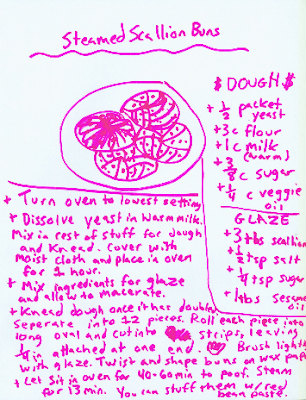 Steamed Scallion Buns
$ DOUGH $
+ 1/2 packet yeast
+ 3 c flour
+ 1 c milk (warm)
+ c sugar
+ 1/4 c veggie oil
GLAZE
+ 3 tbs scallion
+ 1/2 tsp salt
+ 1/4 tsp sugar
+ 1 tbs sesame oil
+ Turn oven to lowest setting
+ Dissolve yeast in warm milk.
Mix in rest of stuff for dough
and Knead. Cover with
moist cloth and place in
oven for 1 hour.
+ Mix ingredients for glaze
and allow to macerate.
+ Knead dough once it has doubled
Seperate into 12 pieces. Roll each piece into
long oval and cut into strips, leaving
1/4 in attached at one end. Brush lightly
with glaze. Twist and shape buns on wax paper
+ Let sit in oven for 40-60 min to poof. Steam
for 13 min. You can stuff them w/ red
bean paste.